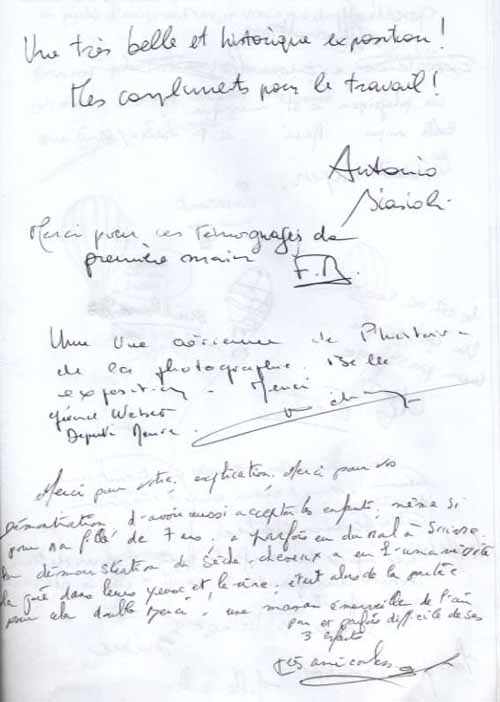 Une très belle et historique exposition!
Mes compliments pour le travail!
Antonio
Merci pour ces témoignages de
première main F.R.
Une vue aérienne de l'histoire
de la photographie. Belle
exposition - Merci
Gérance Weber
Deputé Meuse.
Merci pour votre explication. Merci pour vos
démonstration d'avoir aussi accepter les enfants, même si
pour ma fille de 7 ans. a parfois eu du mal à suivre.
la démonstration de Sèche-cheveux a eu l'unanimité
la gaité dans leurs yeux et le rire, était alors de la partie.
pour cela double merci! une maman émerveillée de l'air
pur et parfois difficile de ses
3 enfants